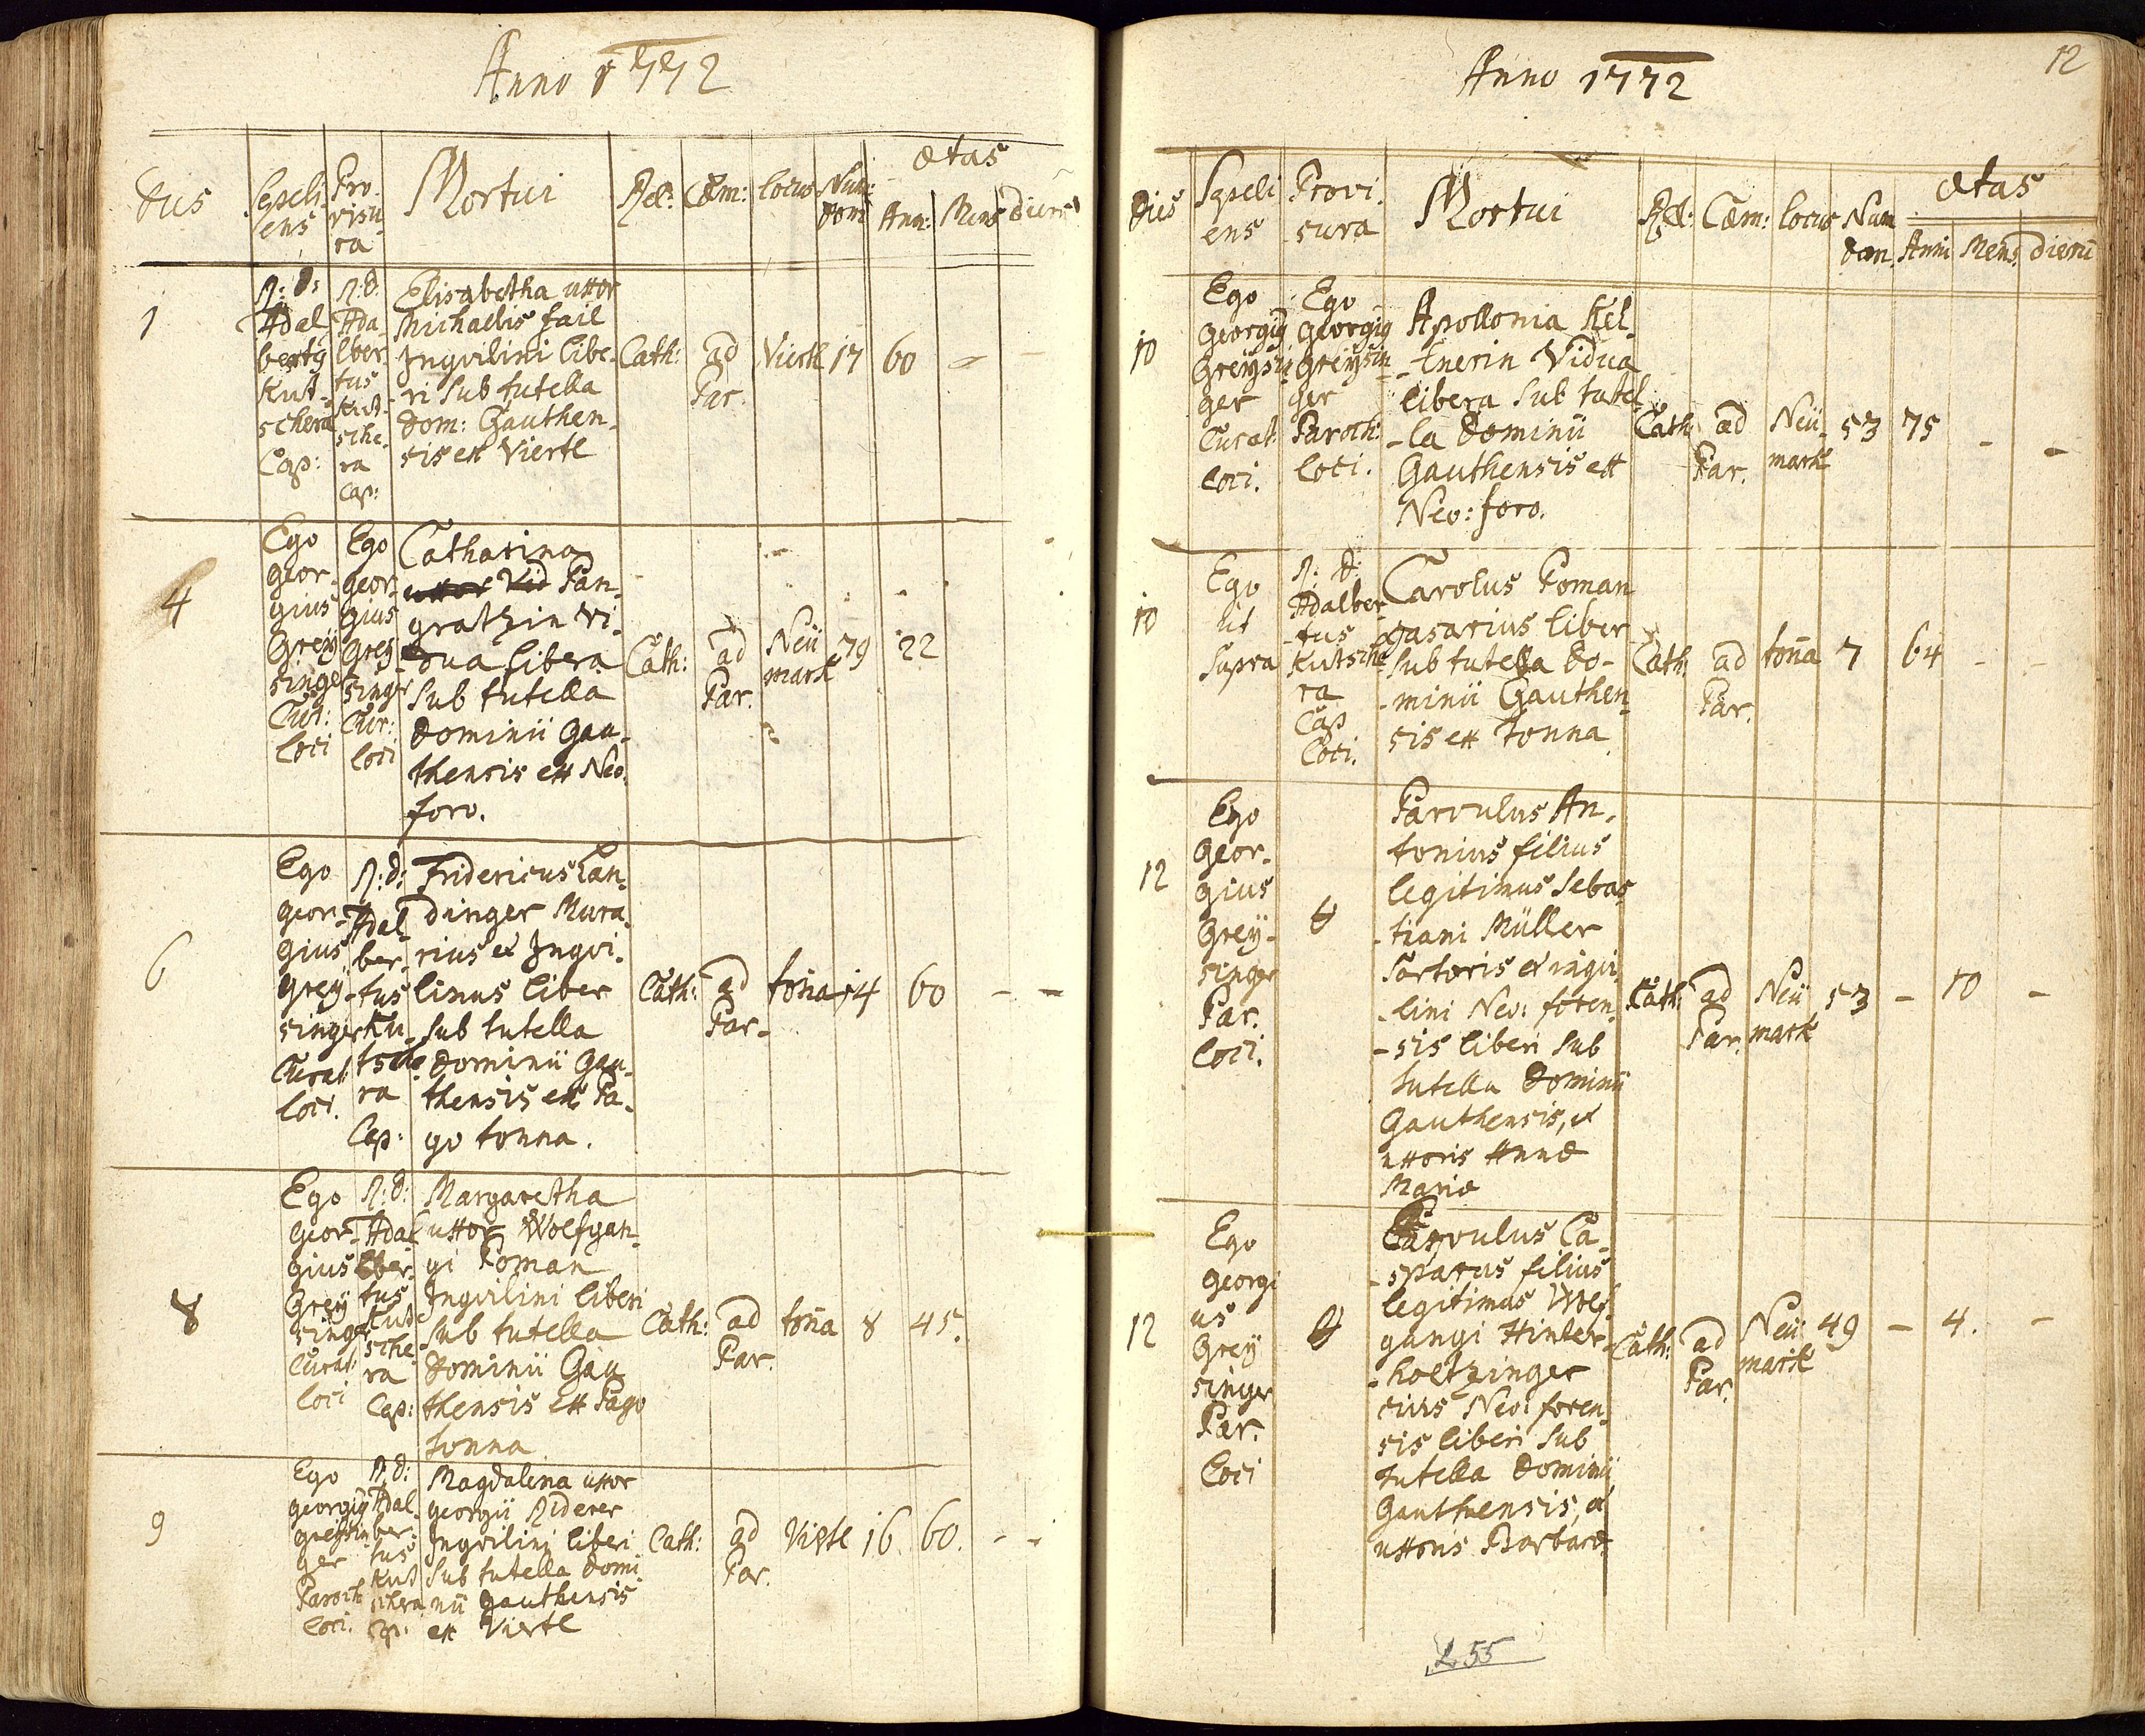 Anno 1772
Dies Sepeli Pro Mortui Rel: Cæm: locus Num: ætas
ens visu dom Ann: Mens dierū
ra
1
R: D:
Adal
bertg
Kut-
schera
Cap:
R: D:
Ada-
lber
tus
Kut-
sche-
ra
Cap:
Elisabetha uxor
Michaelis fail
Inqvilini libe-
ri sub tutella
Dom: Gauthen-
sis ex Viertl
Cath: ad Viertl 17 60 - -
Par.
4
Ego
Geor-
gius
Grey
singer
Cur:
loci
Ego
Geor-
gius
Grey
singer
Cur:
loci
Catharina
uxor Vid Pan-
gratzin vi-
dua libera
sub tutella
Dominii Gau-
thensis ex Neo-
foro.
Cath: ad Neü 79 22
Par. mark
6
Ego
Geor-
gius
Grey-
singer
Curat:
loci.
R: D:
Adal-
ber-
tus
Ku-
tsche
ra
Cap:
Fridericus Lan-
dinger Mura-
rius et Inqvi-
linus liber
sub tutella
Dominii Gau-
thensis ex Pa-
go tonna.
Cath: ad toña 14 60 - -
Par-
8
Ego
Geor-
gius
Grey
singer
Curat:
loci
R: D:
Adal
ber-
tus
Kut
sche-
ra
Cap:
Margaretha
uxor Wolfgan-
gi Poman
Inqvilini liberi
sub tutella
Dominii Gau
thensis ex Pago
tonna
Cath: ad toña 8 45.
Par.
9
Ego
Georgig
Greysin
ger
Paroch
loci.
R: D:
Adal-
ber-
tus
Kut
schera
Cap:
Magdalena uxor
Georgii Riderer
Inqvilini liberi
sub tutella Domi
nii Gauthensis
ex Viertl
Cath: ad Viertl 16 60. - -
Par.
Anno 1772
12
Dies Sepeli Provi- Mortui Rel: Cæm: locus Num ætas
ens sura dom. Anni Mens. dierū
10
Ego
Georgig
Greysin
ger
Curat:
loci.
Ego
Georgig
Greysin
ger
Paroch:
loci.
Apollonia Kel-
-lnerin Vidua
libera sub tutel
-la Dominii
Gauthensis ex
Neo: foro.
Cath: ad Neü- 53 75 - -
Par. mark
10
Ego
ut
supra
R: D:
Adalber-
tus
Kutsche
ra
Cap
loci.
Carolus Poman
casarius liber
sub tutella Do-
-minii Gauthen-
sis ex tonna
Cath: ad toña 7 64 - -
Par.
12
Ego
Geor-
gius
Grey-
singer
Par.
loci.
Parvulus An-
tonius filius
legitimus Sebas
-tiani Müller
Sartoris et inqvi
-lini Neo: foren-
-sis liberi sub
tutella Dominii
Gauthensis, et
uxoris Annæ
Mariæ
Cath: ad Neü 53 - 10 -
Par. mark
12
Ego
Georgi
us
Grey
singer
Par.
loci
Parvulus Ca-
-sparus filius
legitimus Wolf-
gangi Hinter-
-holtzinger
civis Neo: foren-
sis liberi sub
tutella Dominii
Gauthensis, et
uxoris Barbaræ
Cath: ad Neü 49 - 4. -
Par. mark
L 55